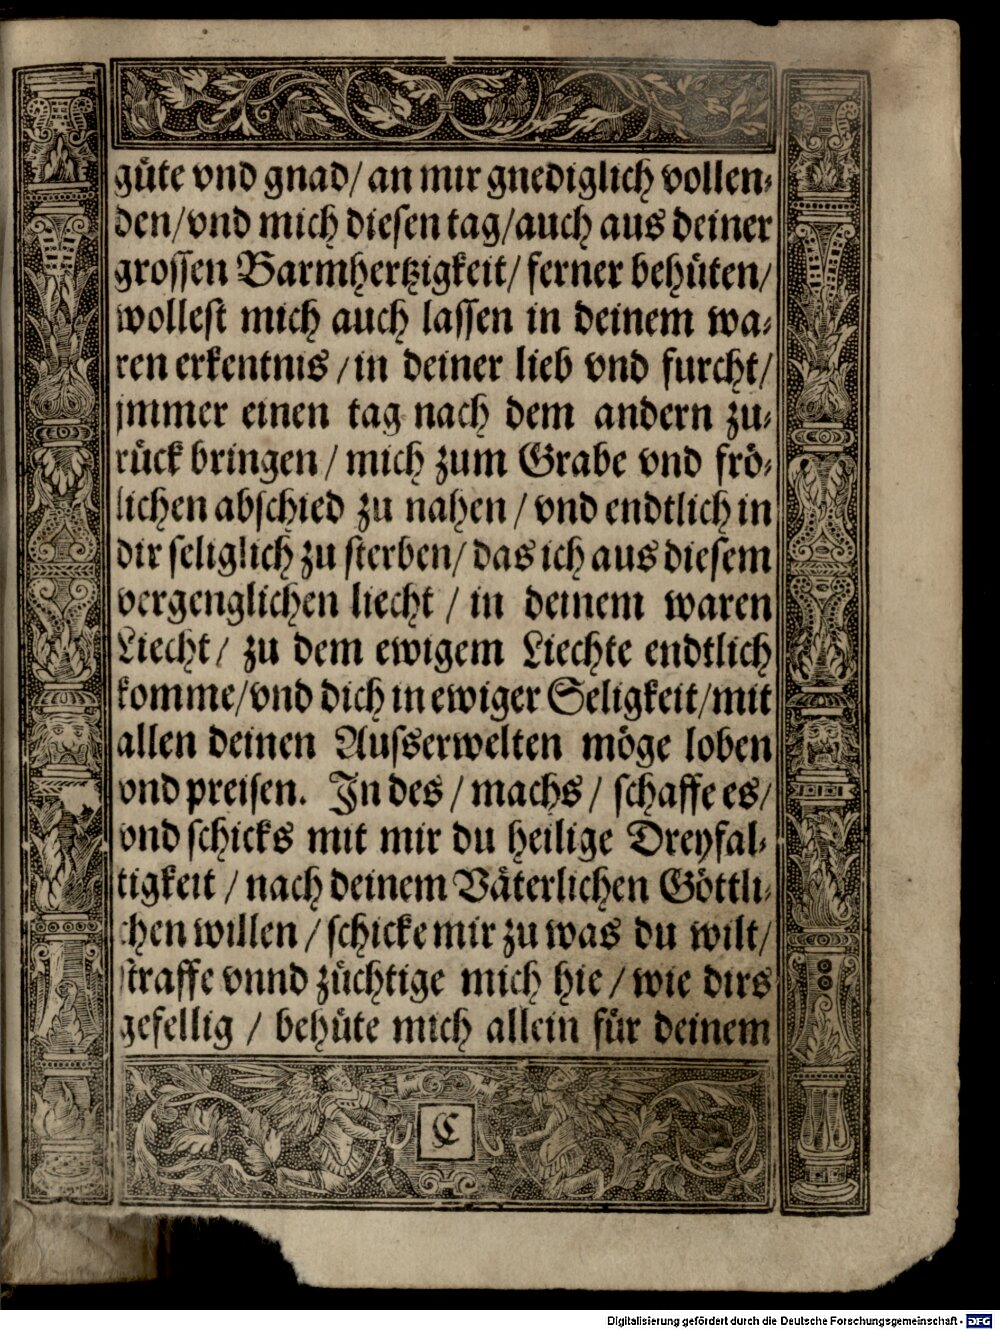 güte vnd gnad/ an mir gnediglich vollen⸗
den/vnd mich diesen tag/auch aus deiner
grossen Barmhertzigkeit/ ferner behüten/
wollest mich auch lassen in deinem wa⸗
ren erkentnis /in deiner lieb vnd furcht/
jmmer einen tag nach dem andern zu⸗
rück bringen / mich zum Grabe vnd frö⸗
lichen abschied zu nahen / vnd endtlich in
dir seliglich zu sterben/ das ich aus diesem
vergenglichen liecht / in deinem waren
Liecht/ zu dem ewigem Liechte endtlich
komme/vnd dich in ewiger Seligkeit/mit
allen deinen Ausserwelten möge loben
vnd preisen. In des / machs / schaffe es/
vnd schicks mit mir du heilige Dreyfal⸗
tigkeit / nach deinem Väterlichen Göttli⸗
chen willen / schicke mir zu was du wilt/
straffe vnnd züchtige mich hie / wie dirs
gefellig / behüte mich allein für deinem
C
Digitalisierung gefördert durch die Deutsche Forschungsgemeinschaft - DFG